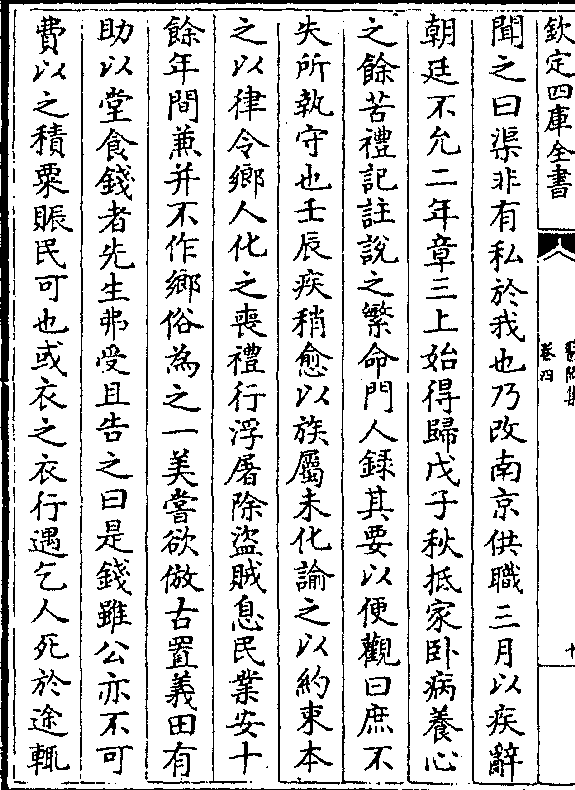 欽定四庫全書
卷四
聞之曰渠非有私於我也乃改南京供職三月以疾辭
朝廷不允二年章三上始得歸戊子秋抵家卧病養心
之餘苦禮記註說之繁命門人録其要以便觀曰庶不
失所執守也壬辰疾稍愈以族屬未化諭之以約束本
之以律令鄉人化之喪禮行浮屠除盜賊息民業安十
餘年間兼并不作鄉俗為之一美嘗欲倣古置義田有
助以堂食錢者先生弗受且告之曰是錢雖公亦不可
費以之積粟賑民可也或衣之衣行遇乞人死於途輒